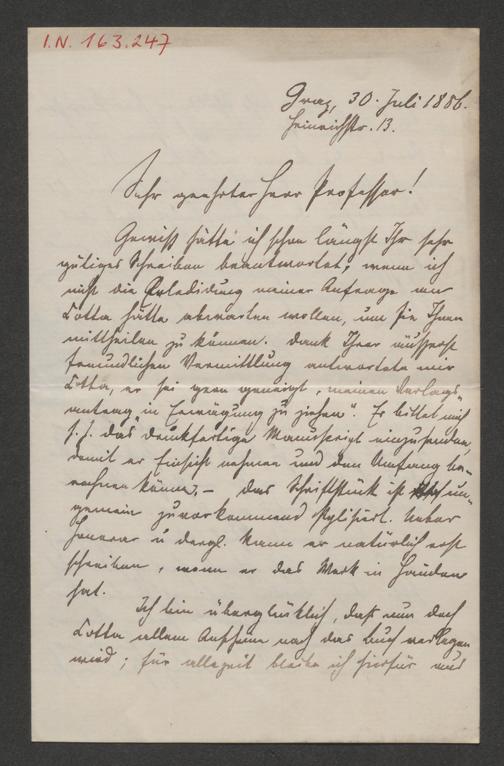 I.N. 163.247
Graz, 30. Juli 1886.
Heinrichstr. 13.
Sehr geehrter Herr Professor!
Gewiß hätte ich schon längst Ihr sehr
gütiges Schreiben beantwortet, wenn ich
nicht die Erledidung meiner Anfrage an
Cotta hätte abwarten wollen, um sie Ihnen
mittheilen zu können. Dank Ihrer äußerst
freundlichen Vermittlung antwortete mir
Cotta, er sei gern geneigt, „meinen Verlags-
antrag in Erwägung zu ziehen“. Er bittet mich
das druckfertige Manuscript einzusenden,
damit er Einsicht nehmen und den Umfang be-
rechnen könne. – Das Schriftstück ist un-
gemein zuvorkommend stylisirt. Ueber
Honorar u. dergl. kann er natürlich erst
schreiben, wenn er das Werk in Händen
hat.
Ich bin überglücklich, daß nun doch
Cotta allem Anschein nach das Buch verlegen
wird; für allezeit bleibe ich hierfür